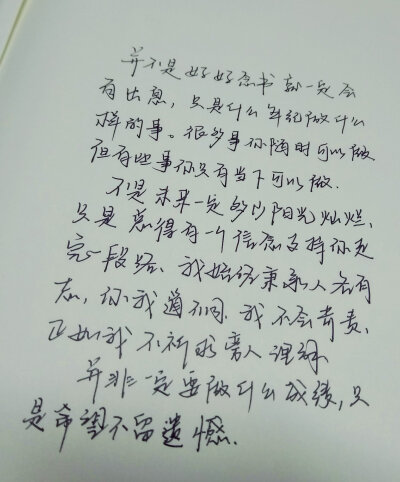 并不是好好念书就一定会
有出息，只是什么年纪做什么
样的事。很多事你随时可以做
但有些事你只有当下可以做.
不是未来一定多么阳光灿烂，
只是总得有一个信念支持你走
完一段路。我始终秉承人各有
志，你我道不同，我不会苛责，
正如我不祈求旁人理解
并非一定要做什么成绩，只
是希望不留遗憾.